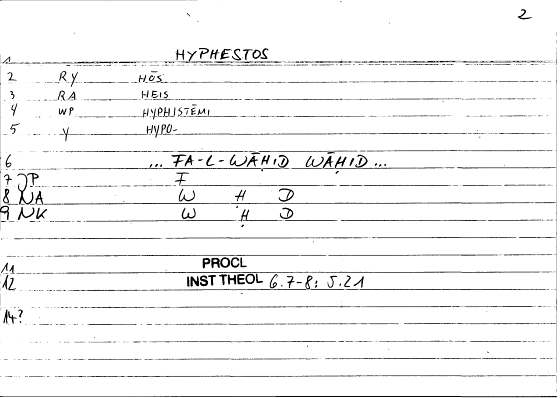 2
HYPHESTOS
1
2 RY HŌS
3 RA HEIS
4 WP HYPHISTĒMI
5 Y HYPO-
6 ... FA-L-WĀḤID WĀḤID ...
7 JP F
8 NA W Ḥ D
9 NK W Ḥ D
11 PROCL
12 INST THEOL 6.7-8: 5.21
14?